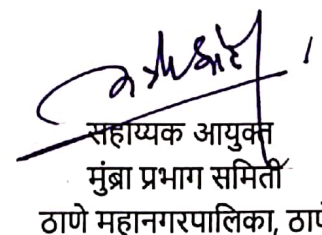 सहाय्यक आयुक्त
मुंब्रा प्रभाग समिती
ठाणे महानगरपालिका,